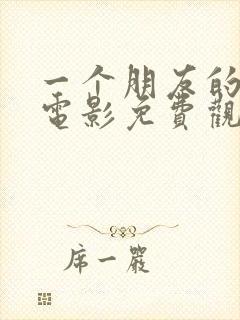 一个朋友的
電影免費觀
席一嚴